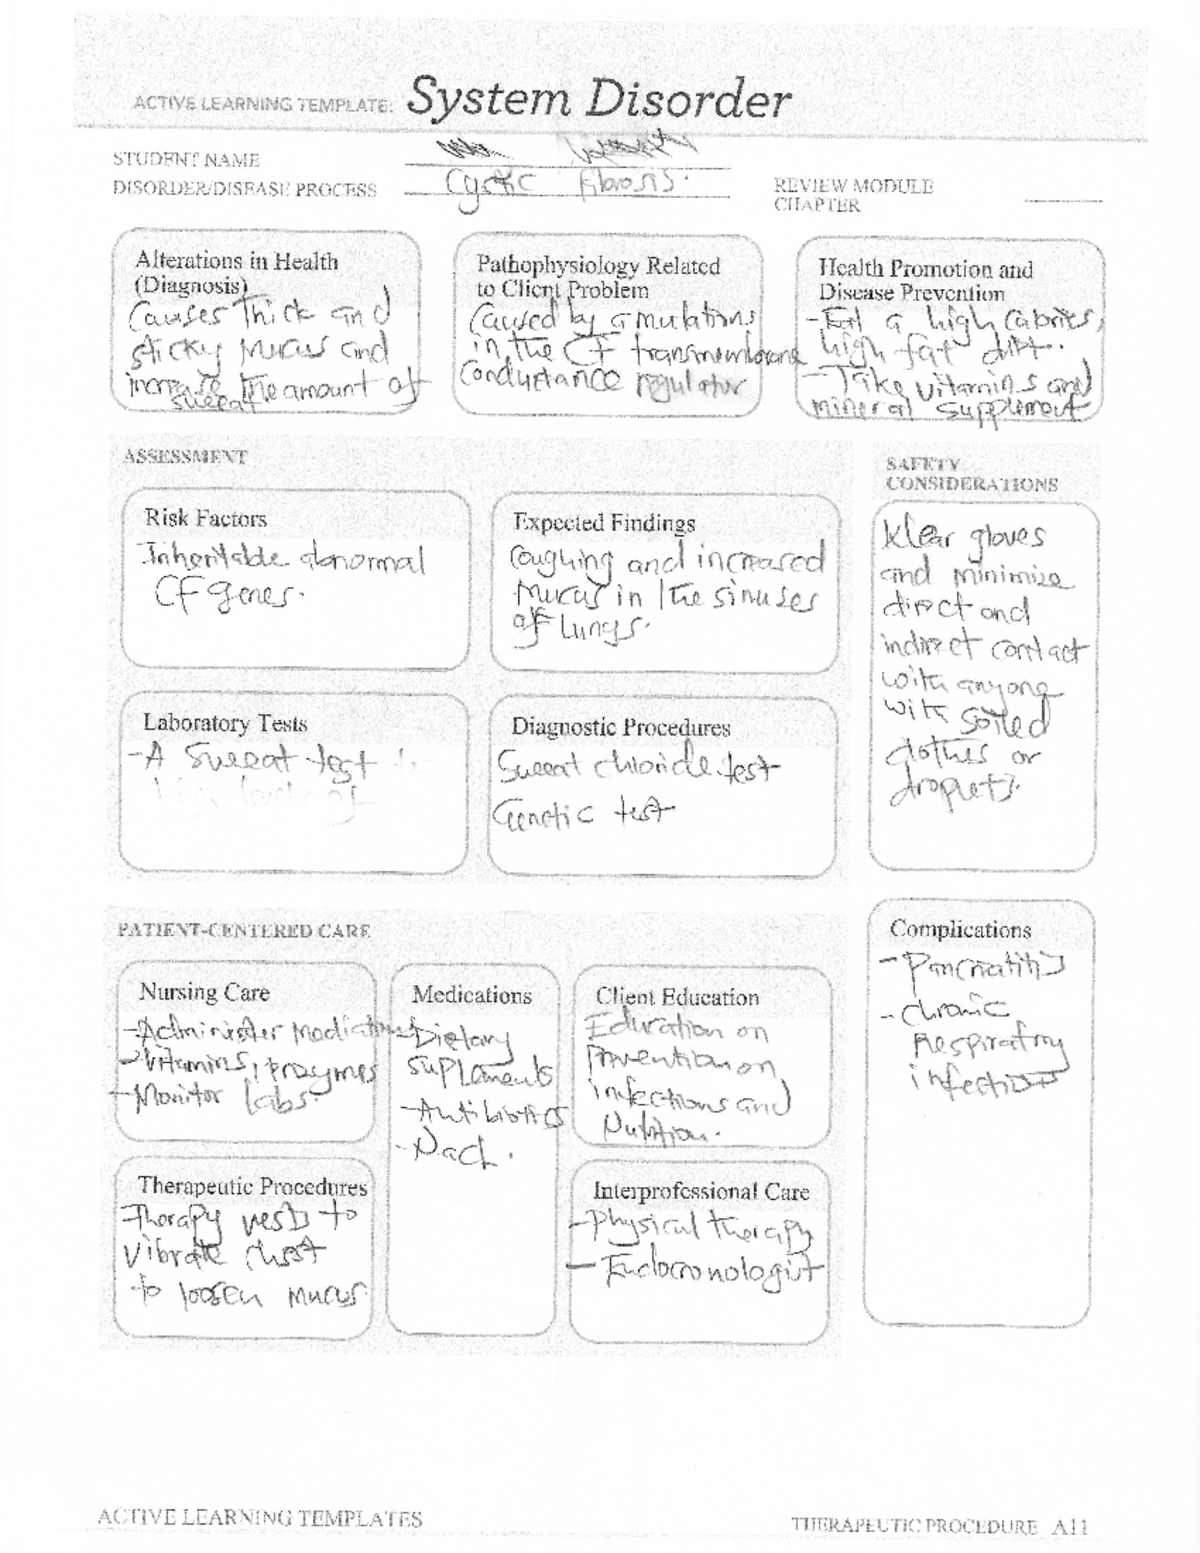 ACTIVE LEARNING TEMPLATE: System Disorder
STUDENT NAME
DISORDER/DISEASE PROCESS Cystic fibrosis.
REVIEW MODULE
CHAPTER
Alterations in Health
(Diagnosis)
Causes thick and
sticky mucus and
increase the amount of
sweat
Pathophysiology Related
to Client Problem
Caused by a mutations
in the CF transmembrane
conductance regulator
Health Promotion and
Disease Prevention
- Eat a high calories,
high fat diet.
- Take vitamins and
mineral supplement
ASSESSMENT
SAFETY
CONSIDERATIONS
Risk Factors
Inheritable abnormal
CF genes.
Expected Findings
Coughing and increased
mucus in the sinuses
of lungs.
Wear gloves
and minimize
direct and
indirect contact
with anyone
with soiled
clothes or
droplets.
Laboratory Tests
- A sweat test
high level of
Diagnostic Procedures
Sweat chloride test
Genetic test
PATIENT-CENTERED CARE
Complications
- Pancreatitis
- chronic
Respiratory
infections
Nursing Care
- Administer medications
- Vitamins, enzymes
- Monitor labs.
Medications
- Dietary
suplements
- Antibiotics
Client Education
Education on
prevention on
infections and
Nutrition.
Therapeutic Procedures
Therapy vests to
vibrate chest
to loosen mucus
Interprofessional Care
- Physical therapy
- Endocronologist
ACTIVE LEARNING TEMPLATES
THERAPEUTIC PROCEDURE A11